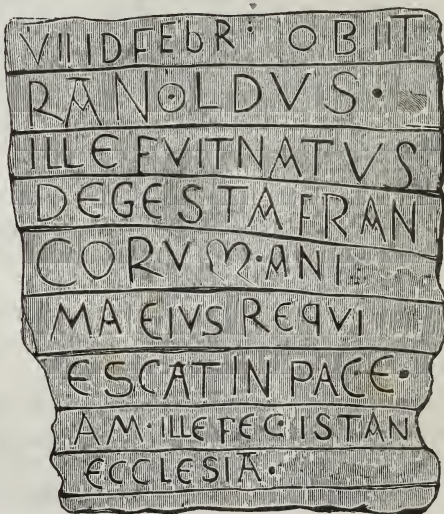 VIIIDFEbR: OBIIT
RANOLDVS·
ILLEFVITNATVS
DEGESTA FRAN
CORVM·ANI
MA EIVS REqVI
ESCAT IN PACE·
AM·ILLE FEC·ISTAN
ECCLESIA·